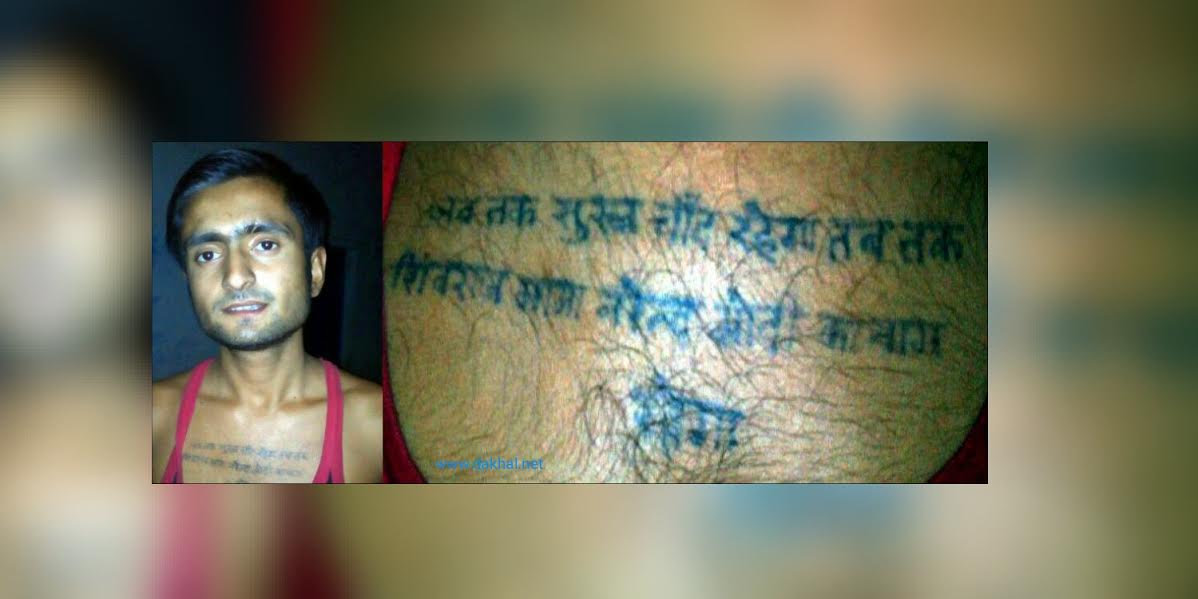 जब तक सुरज चाँद रहेगा तब तक
शिवराज मामा नरेन्द्र मोदी का नाम
रहेगा
www.dakhal.net